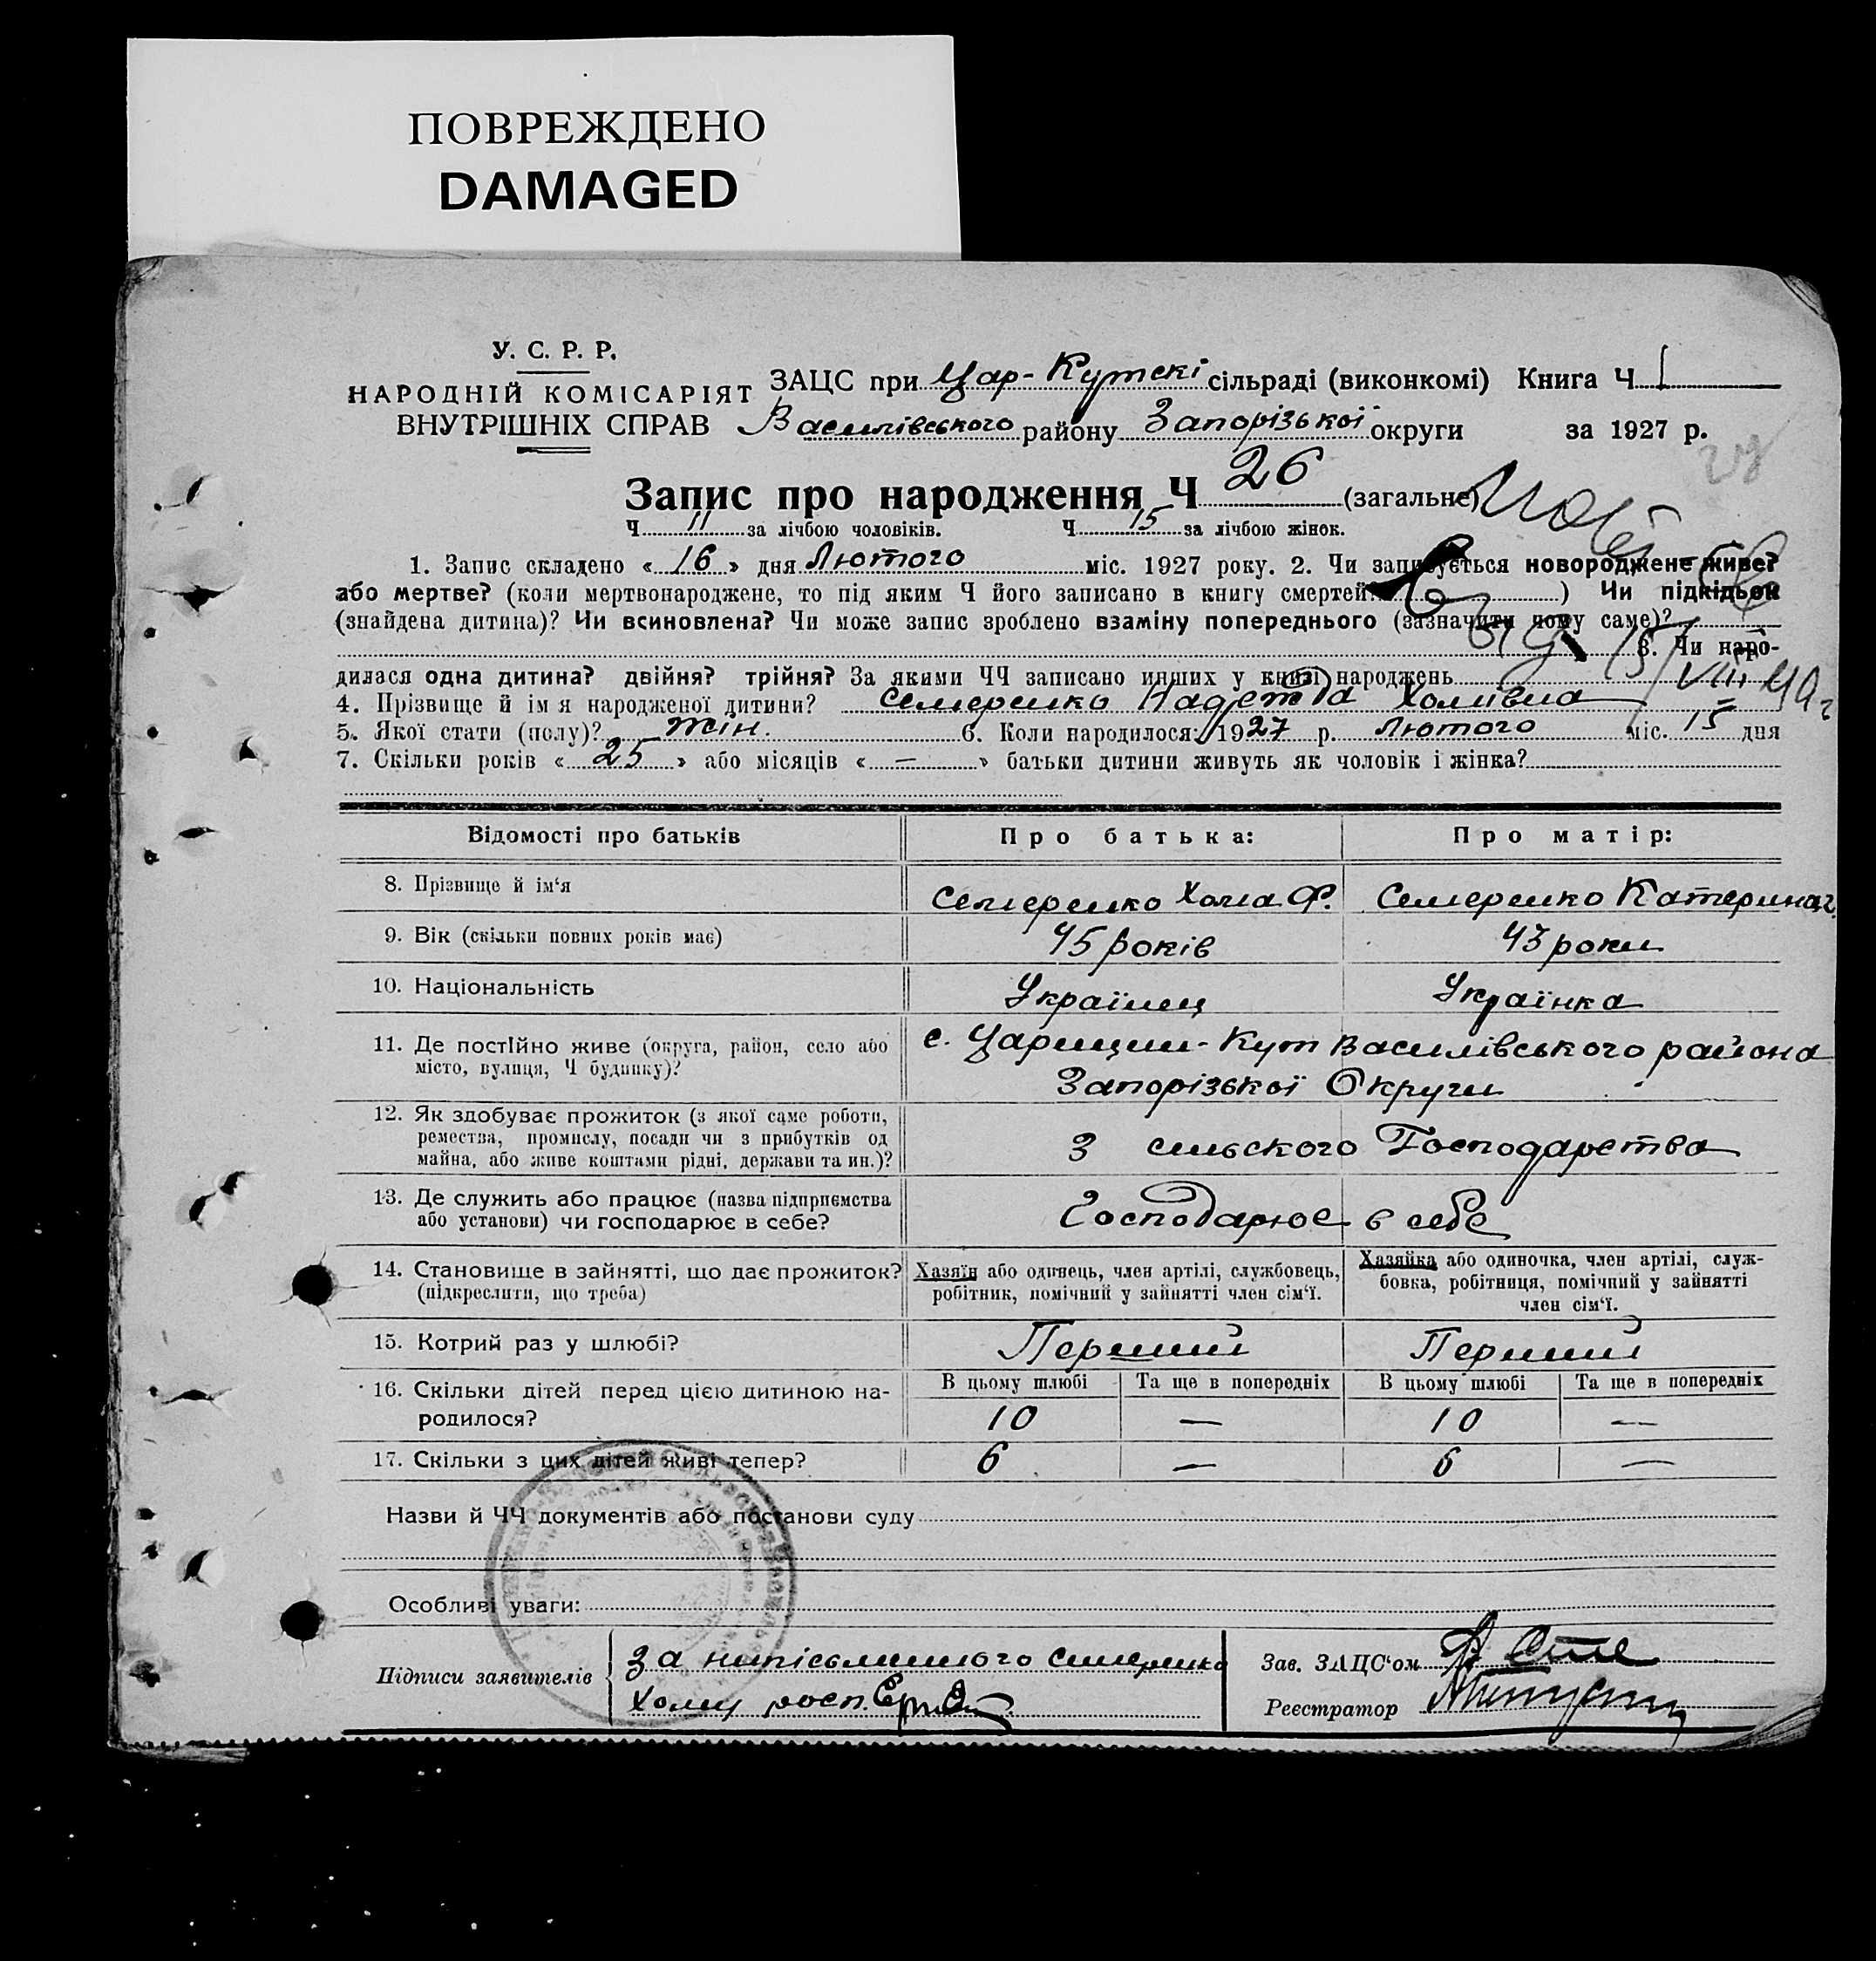 ПОВРЕЖДЕНО
DAMAGED
У. С. Р. Р.
НАРОДНІЙ КОМІСАРІЯТ
ВНУТРІШНІХ СПРАВ
ЗАЦС при Цар-Кутскі сільраді (виконкомі) Книга Ч. 1
Василівського району Запорізької округи за 1927 р.
Запис про народження Ч 26 (загальне)
Ч. 11 за лічбою чоловіків. Ч. 15 за лічбою жінок.
1. Запис складено « 16 » дня Лютого міс. 1927 року. 2. Чи записується новороджене живе?
або мертве? (коли мертвонароджене, то під яким Ч його записано в книгу смертей? ) Чи підкідьок
(знайдена дитина)? Чи всиновлена? Чи може запис зроблено взаміну попереднього (зазначити чому саме)?
3. Чи наро-
дилася одна дитина? двійня? трійня? За якими ЧЧ записано инших у книзі народжень
15/VIII 49 г
4. Прізвище й ім я народженої дитини? Семеренко Надежда Хомівна
5. Якої стати (полу)? жін. 6. Коли народилося: 1927 р. Лютого міс. 15 дня
7. Скільки років « 25 » або місяців « — » батьки дитини живуть як чоловік і жінка?
Відомості про батьків Про батька: Про матір:
8. Прізвище й ім‘я Семеренко Хома Ф. Семеренко Катерина
9. Вік (скільки повних років має) 45 років 43 роки
10. Національність Українец Українка
11. Де постійно живе (округа, район, село або
місто, вулиця, Ч будинку)?
с. Царицин-Кут Василівського района
Запорізької Округи
12. Як здобуває прожиток (з якої саме роботи,
ремества, промислу, посади чи з прибутків од
майна, або живе коштами рідні, держави та ин.)?
З сильского Господарства
13. Де служить або працює (назва підприємства
або установи) чи господарює в себе?
Господарює в себе
14. Становище в зайнятті, що дає прожиток?
(підкреслити, що треба)
Хазяїн або одинець, член артілі, службовець,
робітник, помічний у зайнятті член сім‘ї.
Хазяйка або одиночка, член артілі, служ-
бовка, робітниця, помічний у зайнятті
член сім‘ї.
15. Котрий раз у шлюбі? Перший Перший
16. Скільки дітей перед цією дитиною на-
родилося?
В цьому шлюбі Та ще в попередніх В цьому шлюбі Та ще в попередніх
10 — 10 —
17. Скільки з цих дітей живі тепер? 6 — 6 —
Назви й ЧЧ документів або постанови суду
Особливі уваги:
Підписи заявителів
За нипісьминого Симеренко
Хому росп.
Зав. ЗАЦС‘ом
Реєстратор